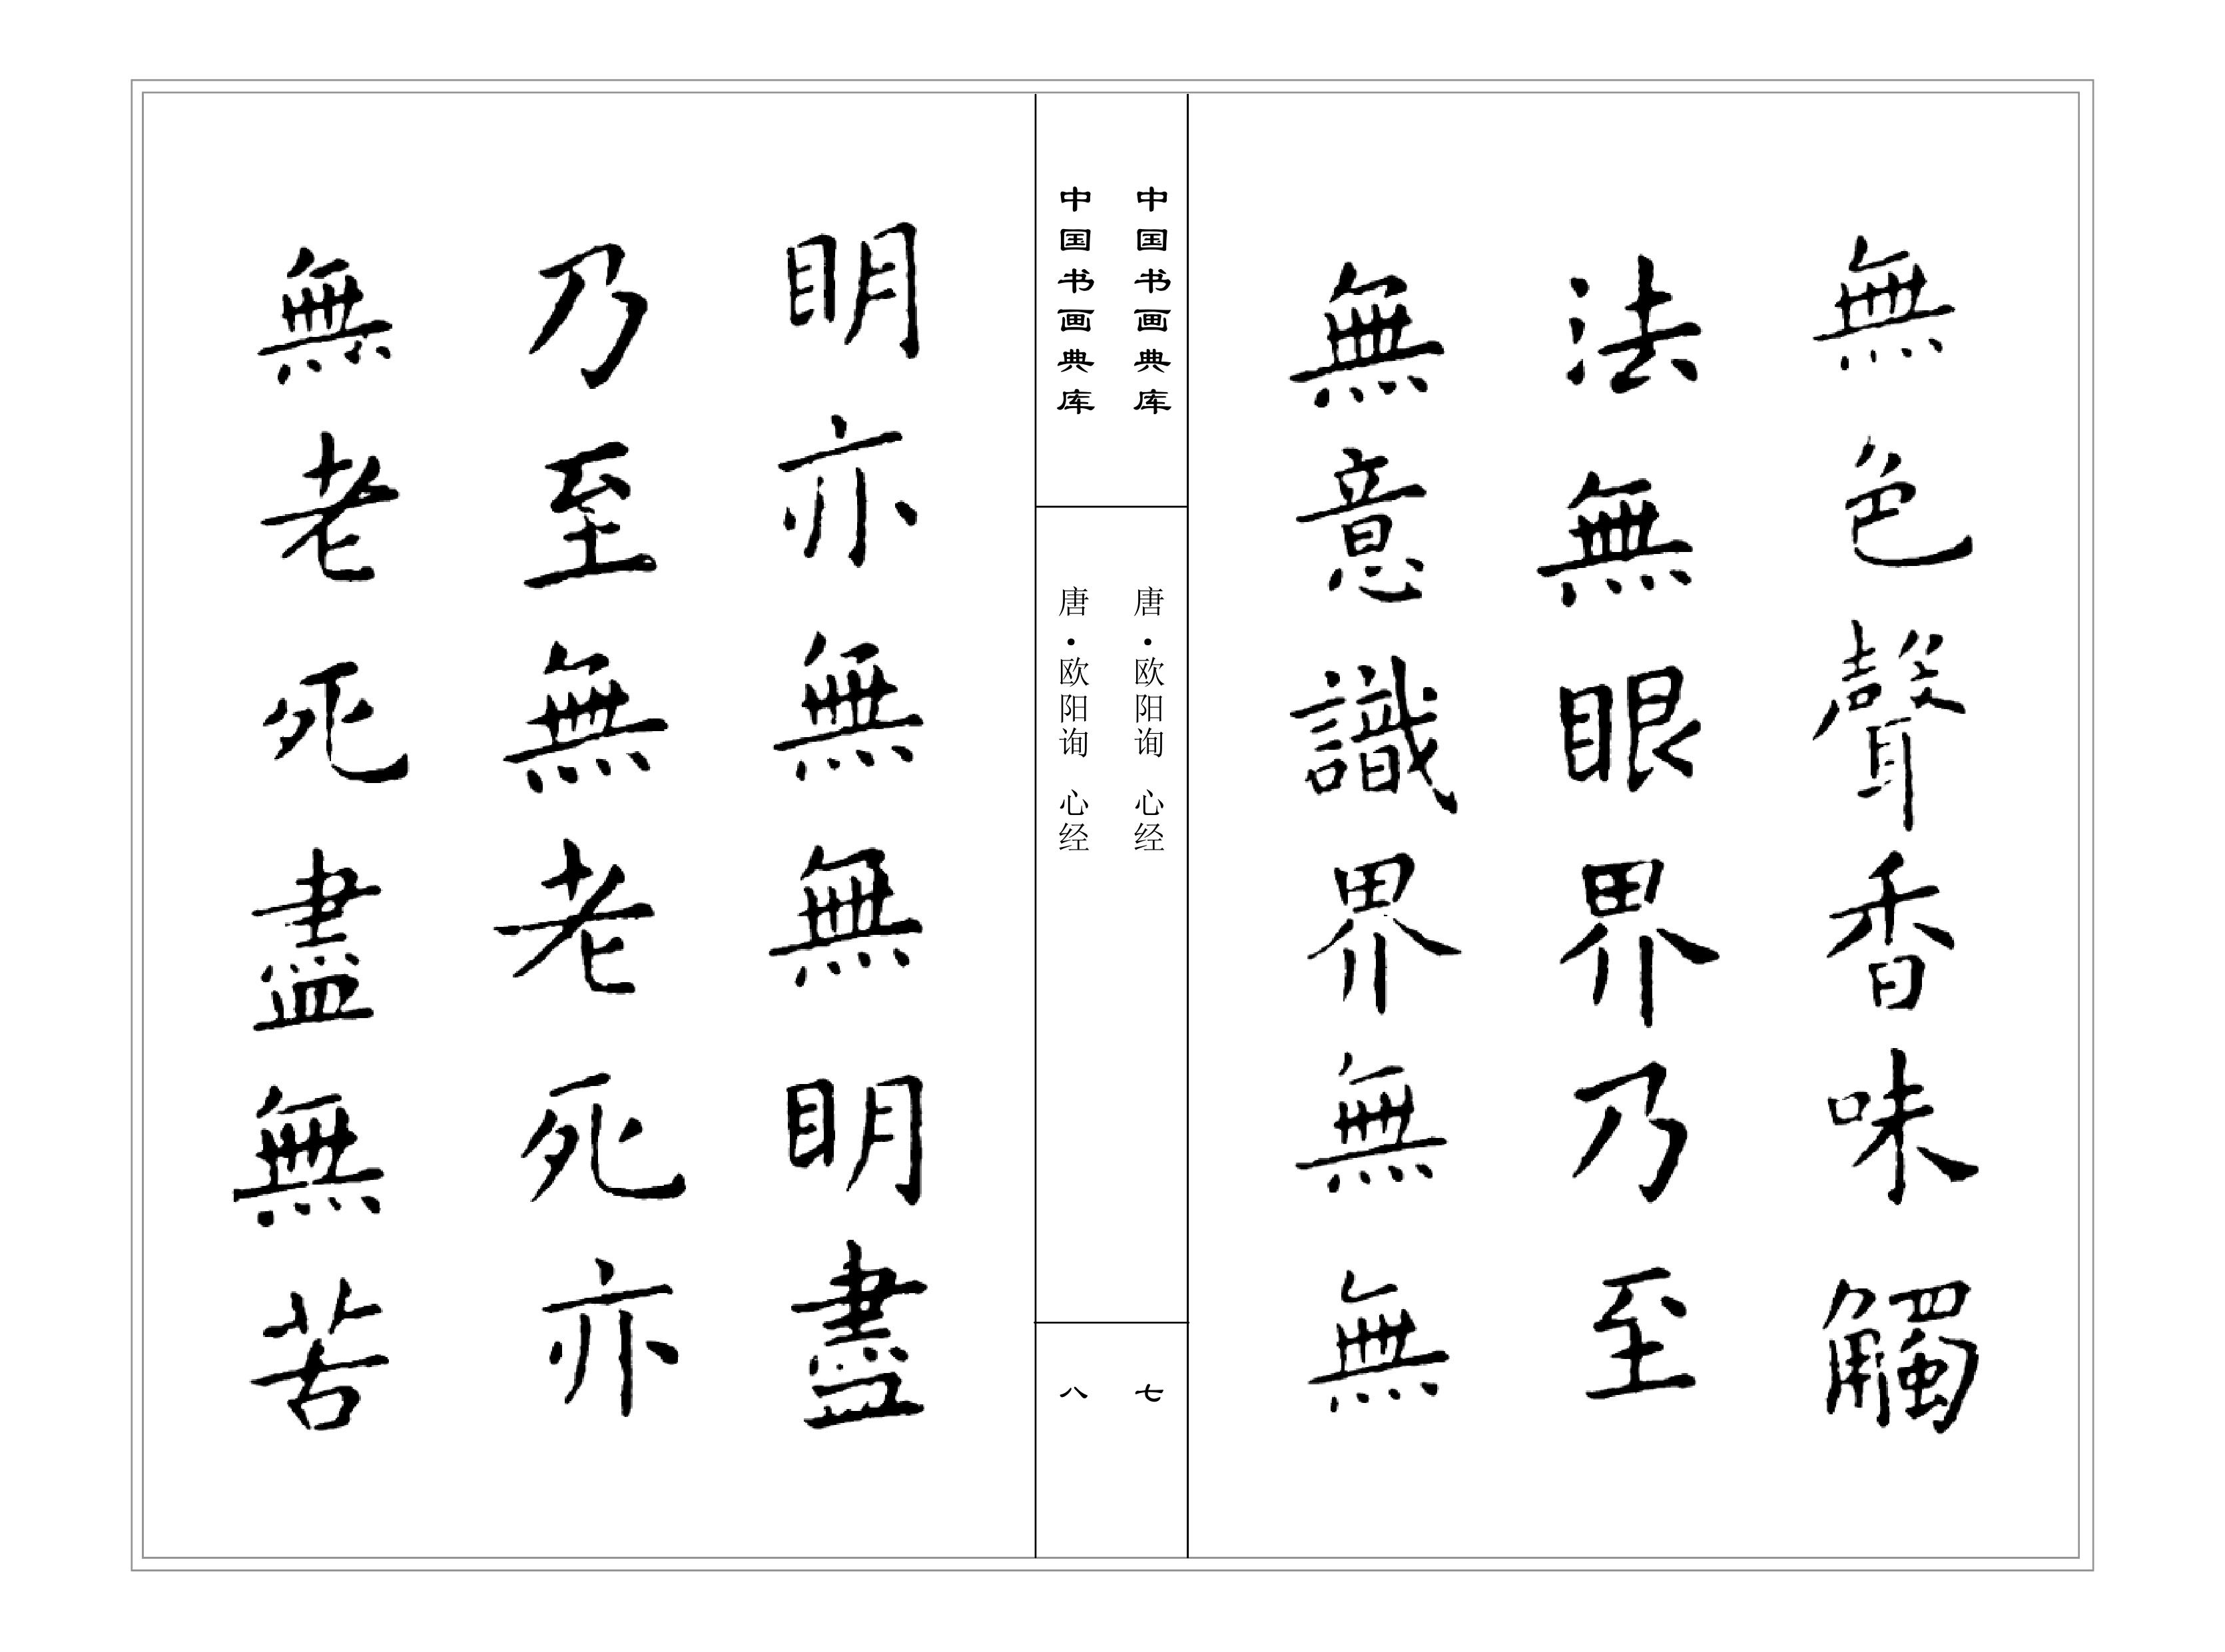 無色聲香味觸
法無眼界乃至
無意識界無無
中国书画典库
唐·欧阳询 心经
七
中国书画典库
唐·欧阳询 心经
八
明亦無無明盡
乃至無老死亦
無老死盡無苦